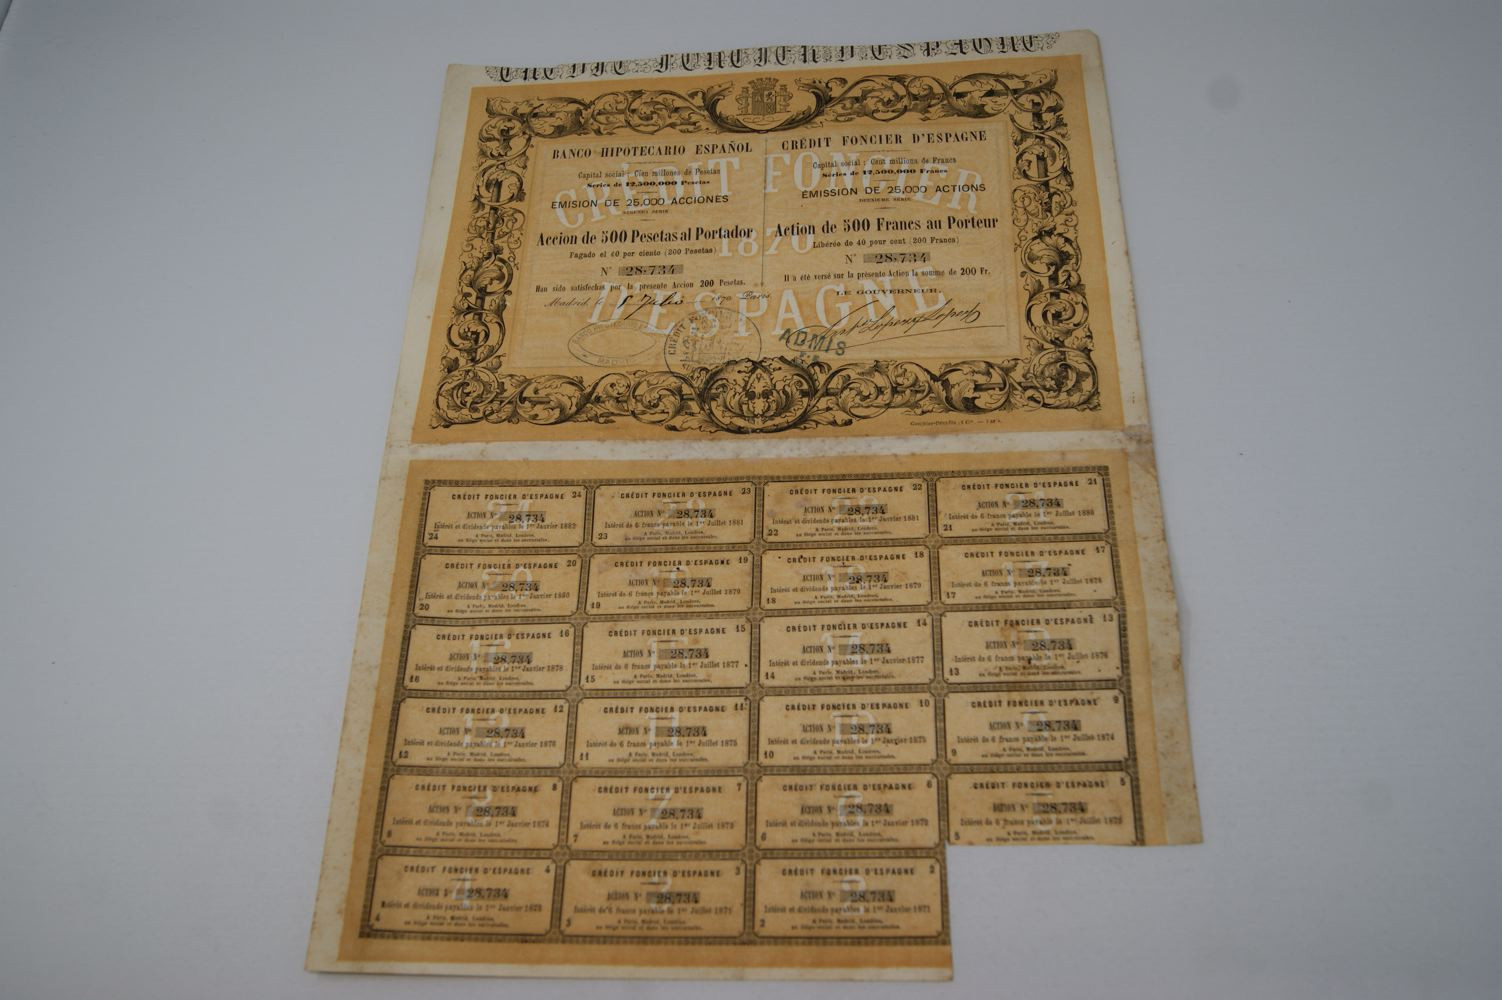 CRÉDIT FONCIER D'ESPAGNE
BANCO HIPOTECARIO ESPAÑOL
Capital social: Cien millones de Pesetas
Séries de 12,500,000 Pesetas
EMISION DE 25,000 ACCIONES
SEGUNDA SERIE
Accion de 500 Pesetas al Portador
Pagado el 40 por ciento (200 Pesetas)
N° 28,734
Han sido satisfechas por la presente Accion 200 Pesetas.
Madrid, le 8 Julio 1870 Paris
CRÉDIT FONCIER D'ESPAGNE
Capital social: Cent millions de Francs
Séries de 12,500,000 Francs
ÉMISSION DE 25,000 ACTIONS
DEUXIÈME SÉRIE
Action de 500 Francs au Porteur
Libérée de 40 pour cent (200 Francs)
N° 28,734
Il a été versé sur la présente Action la somme de 200 Fr.
LE GOUVERNEUR,
CRÉDIT FONCIER
1870
D'ESPAGNE
MADRID
CRÉDIT FONCIER
ADMIS
CRÉDIT FONCIER D'ESPAGNE 24
ACTION N° 28,734
Intérêt et dividende payables le 1er Janvier 1882
A Paris, Madrid, Londres,
24 au Siége social et dans les succursales.
CRÉDIT FONCIER D'ESPAGNE 23
ACTION N° 28,734
Intérêt de 6 francs payable le 1er Juillet 1881
A Paris, Madrid, Londres,
23 au Siége social et dans les succursales.
CRÉDIT FONCIER D'ESPAGNE 22
ACTION N° 28,734
Intérêt et dividende payables le 1er Janvier 1881
A Paris, Madrid, Londres,
22 au Siége social et dans les succursales.
CRÉDIT FONCIER D'ESPAGNE 21
ACTION N° 28,734
Intérêt de 6 francs payable le 1er Juillet 1880
A Paris, Madrid, Londres,
21 au Siége social et dans les succursales.
CRÉDIT FONCIER D'ESPAGNE 20
ACTION N° 28,734
Intérêt et dividende payables le 1er Janvier 1880
A Paris, Madrid, Londres,
20 au Siége social et dans les succursales.
CRÉDIT FONCIER D'ESPAGNE 19
ACTION N° 28,734
Intérêt de 6 francs payable le 1er Juillet 1879
A Paris, Madrid, Londres,
19 au Siége social et dans les succursales.
CRÉDIT FONCIER D'ESPAGNE 18
ACTION N° 28,734
Intérêt et dividende payables le 1er Janvier 1879
A Paris, Madrid, Londres,
18 au Siége social et dans les succursales.
CRÉDIT FONCIER D'ESPAGNE 17
ACTION N° 28,734
Intérêt de 6 francs payable le 1er Juillet 1878
A Paris, Madrid, Londres,
17 au Siége social et dans les succursales.
CRÉDIT FONCIER D'ESPAGNE 16
ACTION N° 28,734
Intérêt et dividende payables le 1er Janvier 1878
A Paris, Madrid, Londres,
16 au Siége social et dans les succursales.
CRÉDIT FONCIER D'ESPAGNE 15
ACTION N° 28,734
Intérêt de 6 francs payable le 1er Juillet 1877
A Paris, Madrid, Londres,
15 au Siége social et dans les succursales.
CRÉDIT FONCIER D'ESPAGNE 14
ACTION N° 28,734
Intérêt et dividende payables le 1er Janvier 1877
A Paris, Madrid, Londres,
14 au Siége social et dans les succursales.
CRÉDIT FONCIER D'ESPAGNE 13
ACTION N° 28,734
Intérêt de 6 francs payable le 1er Juillet 1876
A Paris, Madrid, Londres,
13 au Siége social et dans les succursales.
CRÉDIT FONCIER D'ESPAGNE 12
ACTION N° 28,734
Intérêt et dividende payables le 1er Janvier 1876
A Paris, Madrid, Londres,
12 au Siége social et dans les succursales.
CRÉDIT FONCIER D'ESPAGNE 11
ACTION N° 28,734
Intérêt de 6 francs payable le 1er Juillet 1875
A Paris, Madrid, Londres,
11 au Siége social et dans les succursales.
CRÉDIT FONCIER D'ESPAGNE 10
ACTION N° 28,734
Intérêt et dividende payables le 1er Janvier 1875
A Paris, Madrid, Londres,
10 au Siége social et dans les succursales.
CRÉDIT FONCIER D'ESPAGNE 9
ACTION N° 28,734
Intérêt de 6 francs payable le 1er Juillet 1874
A Paris, Madrid, Londres,
9 au Siége social et dans les succursales.
CRÉDIT FONCIER D'ESPAGNE 8
ACTION N° 28,734
Intérêt et dividende payables le 1er Janvier 1874
A Paris, Madrid, Londres,
8 au Siége social et dans les succursales.
CRÉDIT FONCIER D'ESPAGNE 7
ACTION N° 28,734
Intérêt de 6 francs payable le 1er Juillet 1873
A Paris, Madrid, Londres,
7 au Siége social et dans les succursales.
CRÉDIT FONCIER D'ESPAGNE 6
ACTION N° 28,734
Intérêt et dividende payables le 1er Janvier 1873
A Paris, Madrid, Londres,
6 au Siége social et dans les succursales.
CRÉDIT FONCIER D'ESPAGNE 5
ACTION N° 28,734
Intérêt de 6 francs payable le 1er Juillet
A Paris, Madrid, Londres,
5 au Siége social et dans les succursales.
CRÉDIT FONCIER D'ESPAGNE 4
ACTION N° 28,734
Intérêt et dividende payables le 1er Janvier
A Paris, Madrid, Londres,
4 au Siége social et dans les succursales.
CRÉDIT FONCIER D'ESPAGNE 3
ACTION N° 28,734
Intérêt de 6 francs payable le 1er Juillet 1871
A Paris, Madrid, Londres,
3 au Siége social et dans les succursales.
CRÉDIT FONCIER D'ESPAGNE 2
ACTION N° 28,734
Intérêt et dividende payables le 1er Janvier 1871
A Paris, Madrid, Londres,
2 au Siége social et dans les succursales.